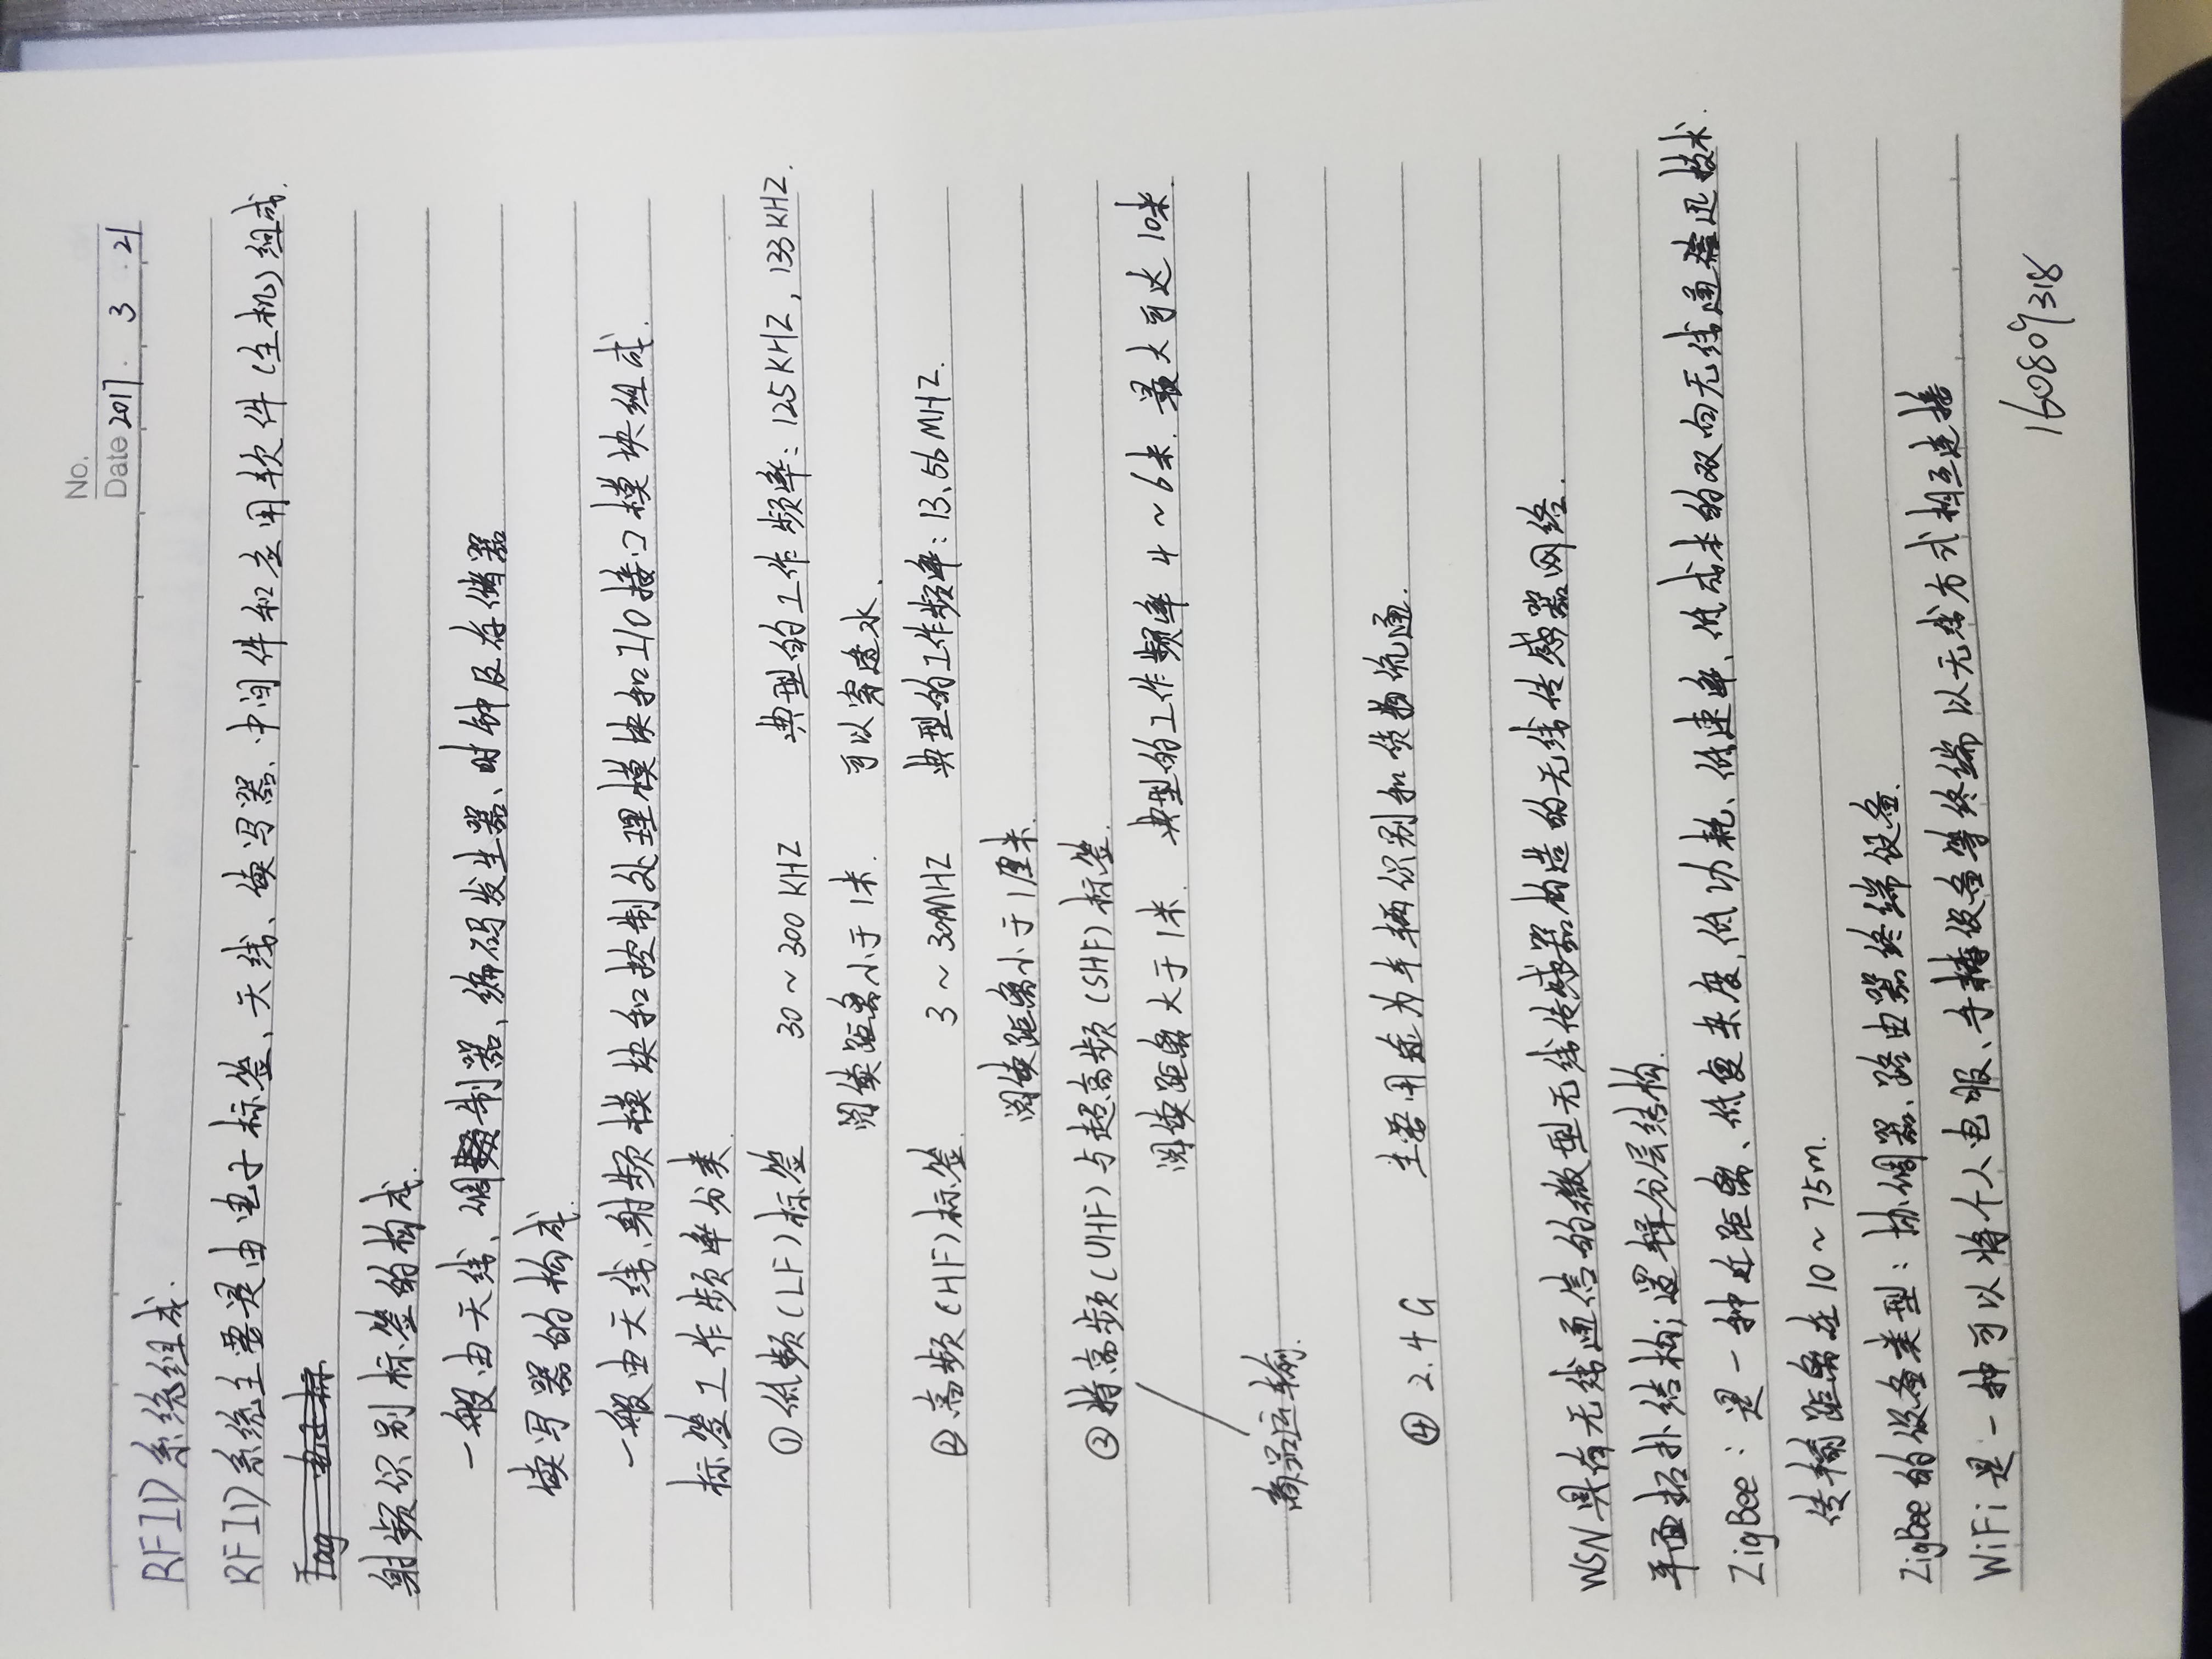 No.
Date 2017.3.21
RFID系统组成.
RFID系统主要是由电子标签、天线、读写器、中间件和应用软件(主机)组成.
射频识别标签的构成.
一般由天线、调制器、编码发生器、时钟及存储器
读写器的构成.
一般由天线、射频模块和控制处理模块和I/O接口模块组成.
标签工作频率分类.
①低频(LF)标签 30~300KHZ 典型的工作频率:125KHZ,133KHZ.
阅读距离小于1米. 可以穿透水.
②高频(HF)标签. 3~30MHZ 典型的工作频率:13.56MHZ.
阅读距离小于1厘米.
③特高频(UHF)与超高频(SHF)标签.
阅读距离大于1米. 典型的工作频率4~6米.最大可达10米.
商品运输.
④2.4G 主要用途为车辆识别和货物流通.
WSN具有无线通信的微型无线传感器构造的无线传感器网络.
平面拓扑结构;逻辑分层结构.
ZigBee:是一种近距离、低复杂度、低功耗、低速率、低成本的双向无线通信技术.
传输距离在10~75m.
ZigBee的设备类型:协调器、路由器、终端设备.
WiFi是一种可以将个人电脑、手持设备等终端以无线方式相互连接
160809318